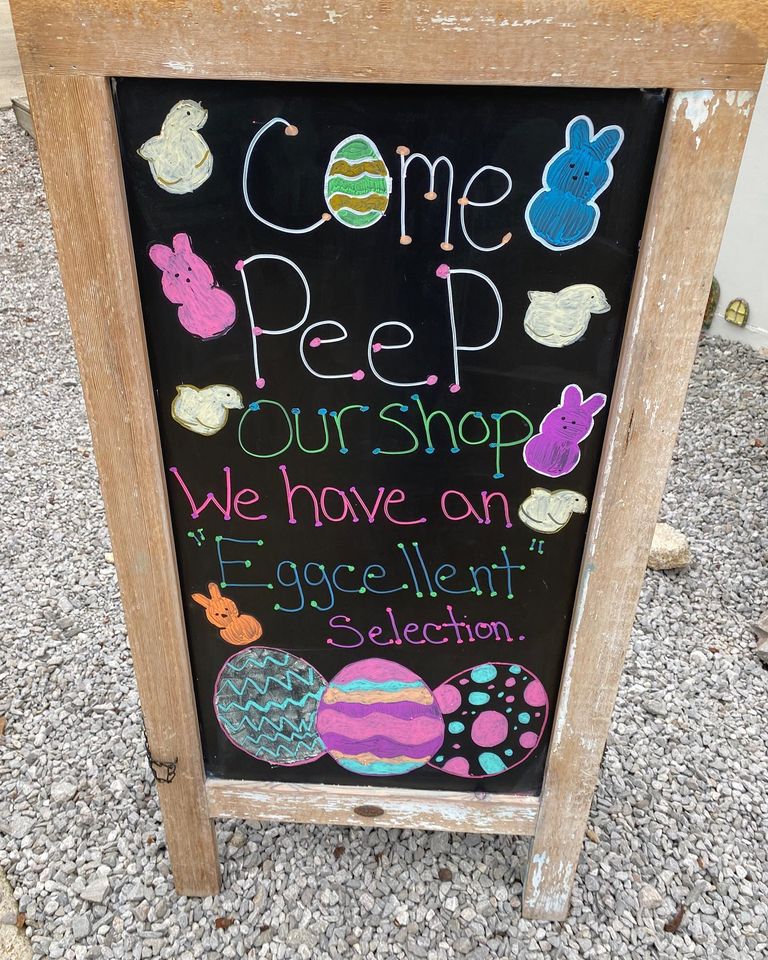 Come
Peep
Our shop
We have an
"Eggcellent"
Selection.